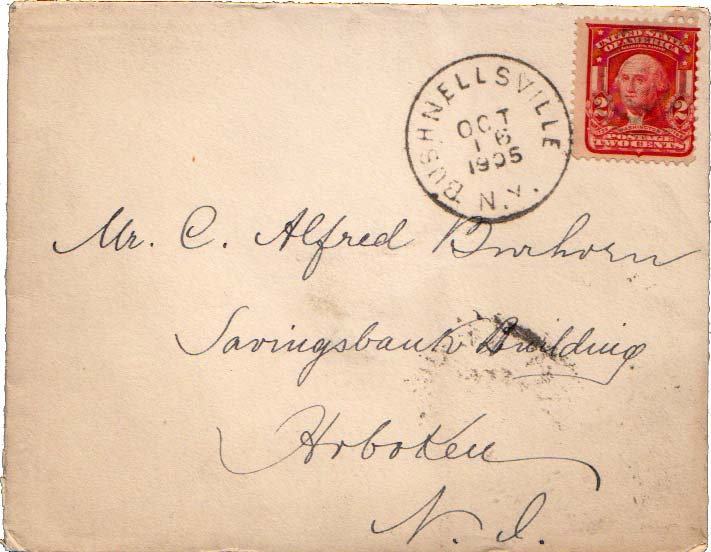 UNITED STATES
OF AMERICA
2 2
POSTAGE
TWO CENTS
BUSHNELLSVILLE
OCT
16
1905
N.Y.
Mr. C. Alfred Burhorn
Savingsbank Building
Hoboken
N. J.